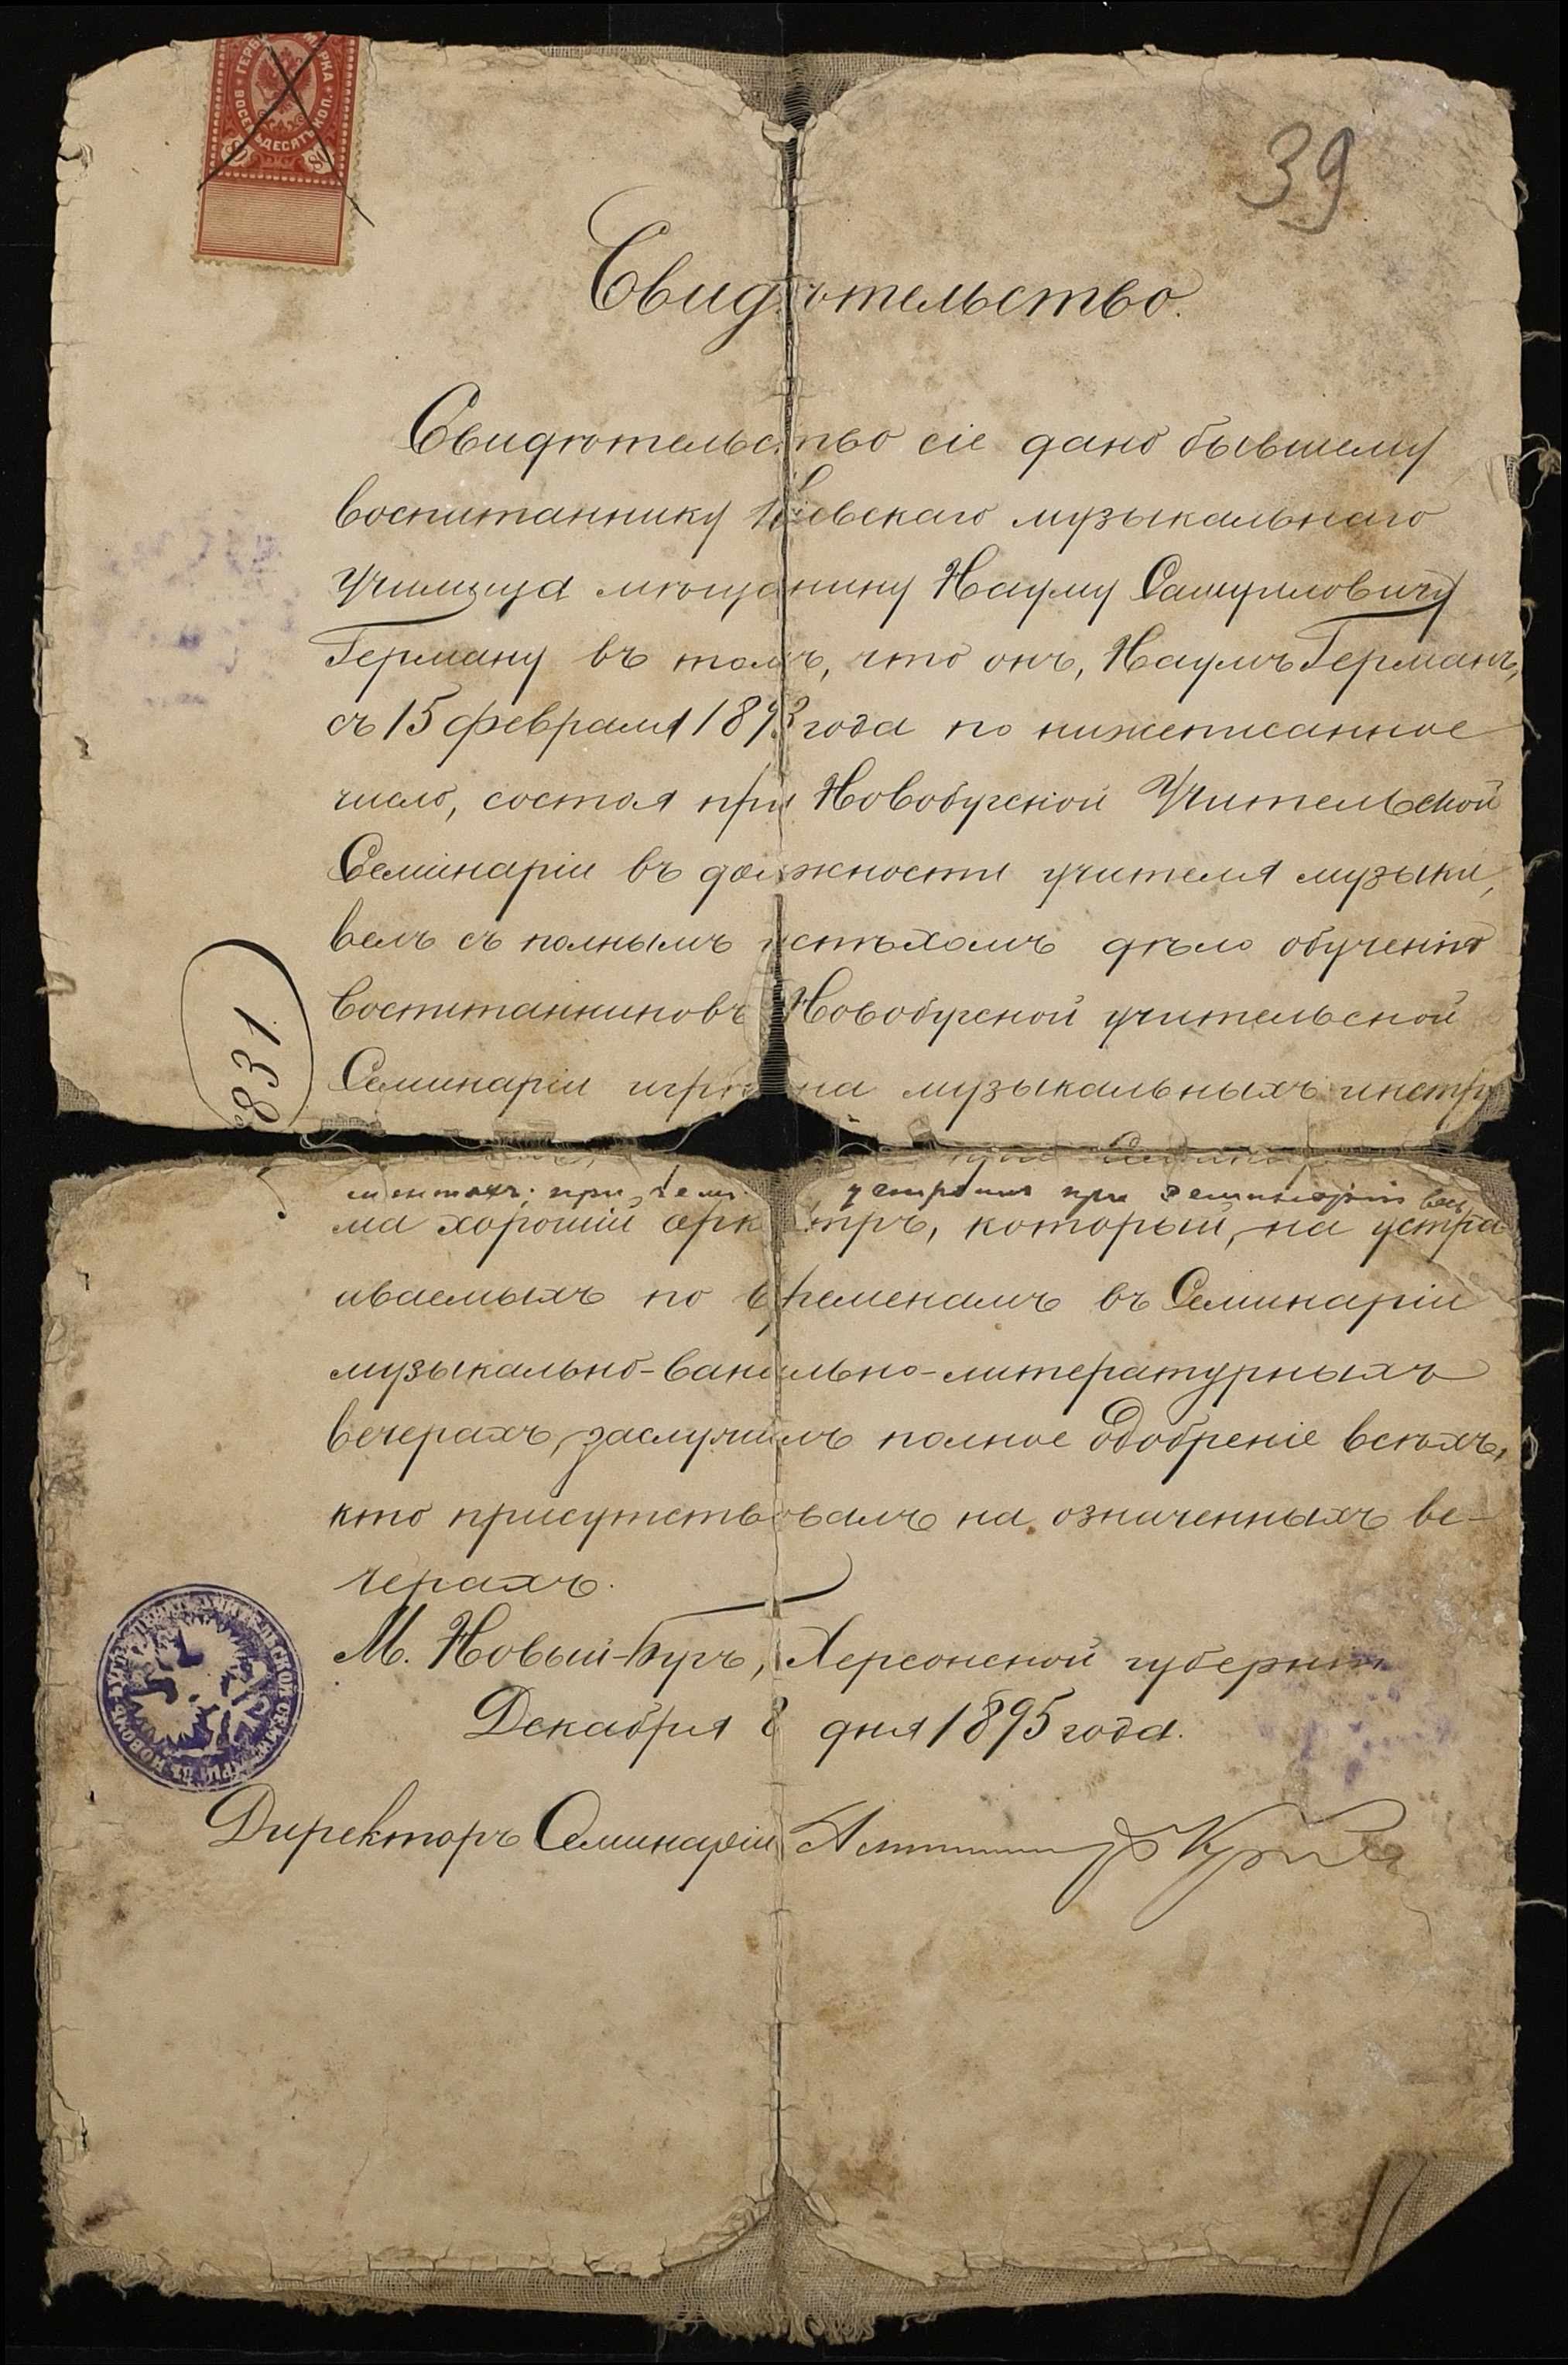 ГЕРБ МАРКА
ВОСЕМЬДЕСЯТЪ КОП.
80 80
39
Свидѣтельство.
Свидѣтельство сіе дано бывшему
воспитаннику Кіевскаго музыкальнаго
Училища мѣщанину Науму Самуиловичу
Герману въ томъ, что онъ, Наумъ Германъ,
съ 15 февраля 1893 года по нижеписанное
число, состоя при Новобугской Учительской
Семинаріи въ должности учителя музыки,
велъ съ полнымъ успѣхомъ дѣло обученія
воспитанниковъ Новобугской учительской
Семинаріи игрѣ на музыкальныхъ инстру
831
ментахъ; при чемъ устроилъ при Семинаріи весь
ма хорошій оркестръ, который, на устра
иваемыхъ по временамъ въ Семинаріи
музыкально-вокально-литературныхъ
вечерахъ, заслужилъ полное одобреніе всѣхъ,
кто присутствовалъ на означенныхъ ве-
черахъ.
М. Новый-Бугъ, Херсонской губерніи
Декабря 8 дня 1895 года.
Директоръ Семинаріи